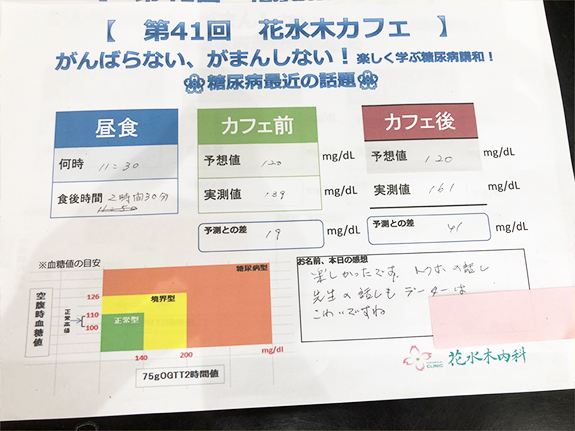 【 第41回 花水木カフェ 】
がんばらない、がまんしない！楽しく学ぶ糖尿病講和！
糖尿病最近の話題
昼食
何時 11:30
食後時間 2時間30分
カフェ前
予想値 120 mg/dL
実測値 139 mg/dL
予測との差 19 mg/dL
カフェ後
予想値 120 mg/dL
実測値 161 mg/dL
予測との差 41 mg/dL
※血糖値の目安
空腹時血糖値
正常高値
126
110
100
糖尿病型
境界型
正常型
140
200
mg/dl
75gOGTT2時間値
お名前、本日の感想
楽しかったです。トクホの話し
先生の話しも データーは
こわいですね
CLINIC
花水木内科